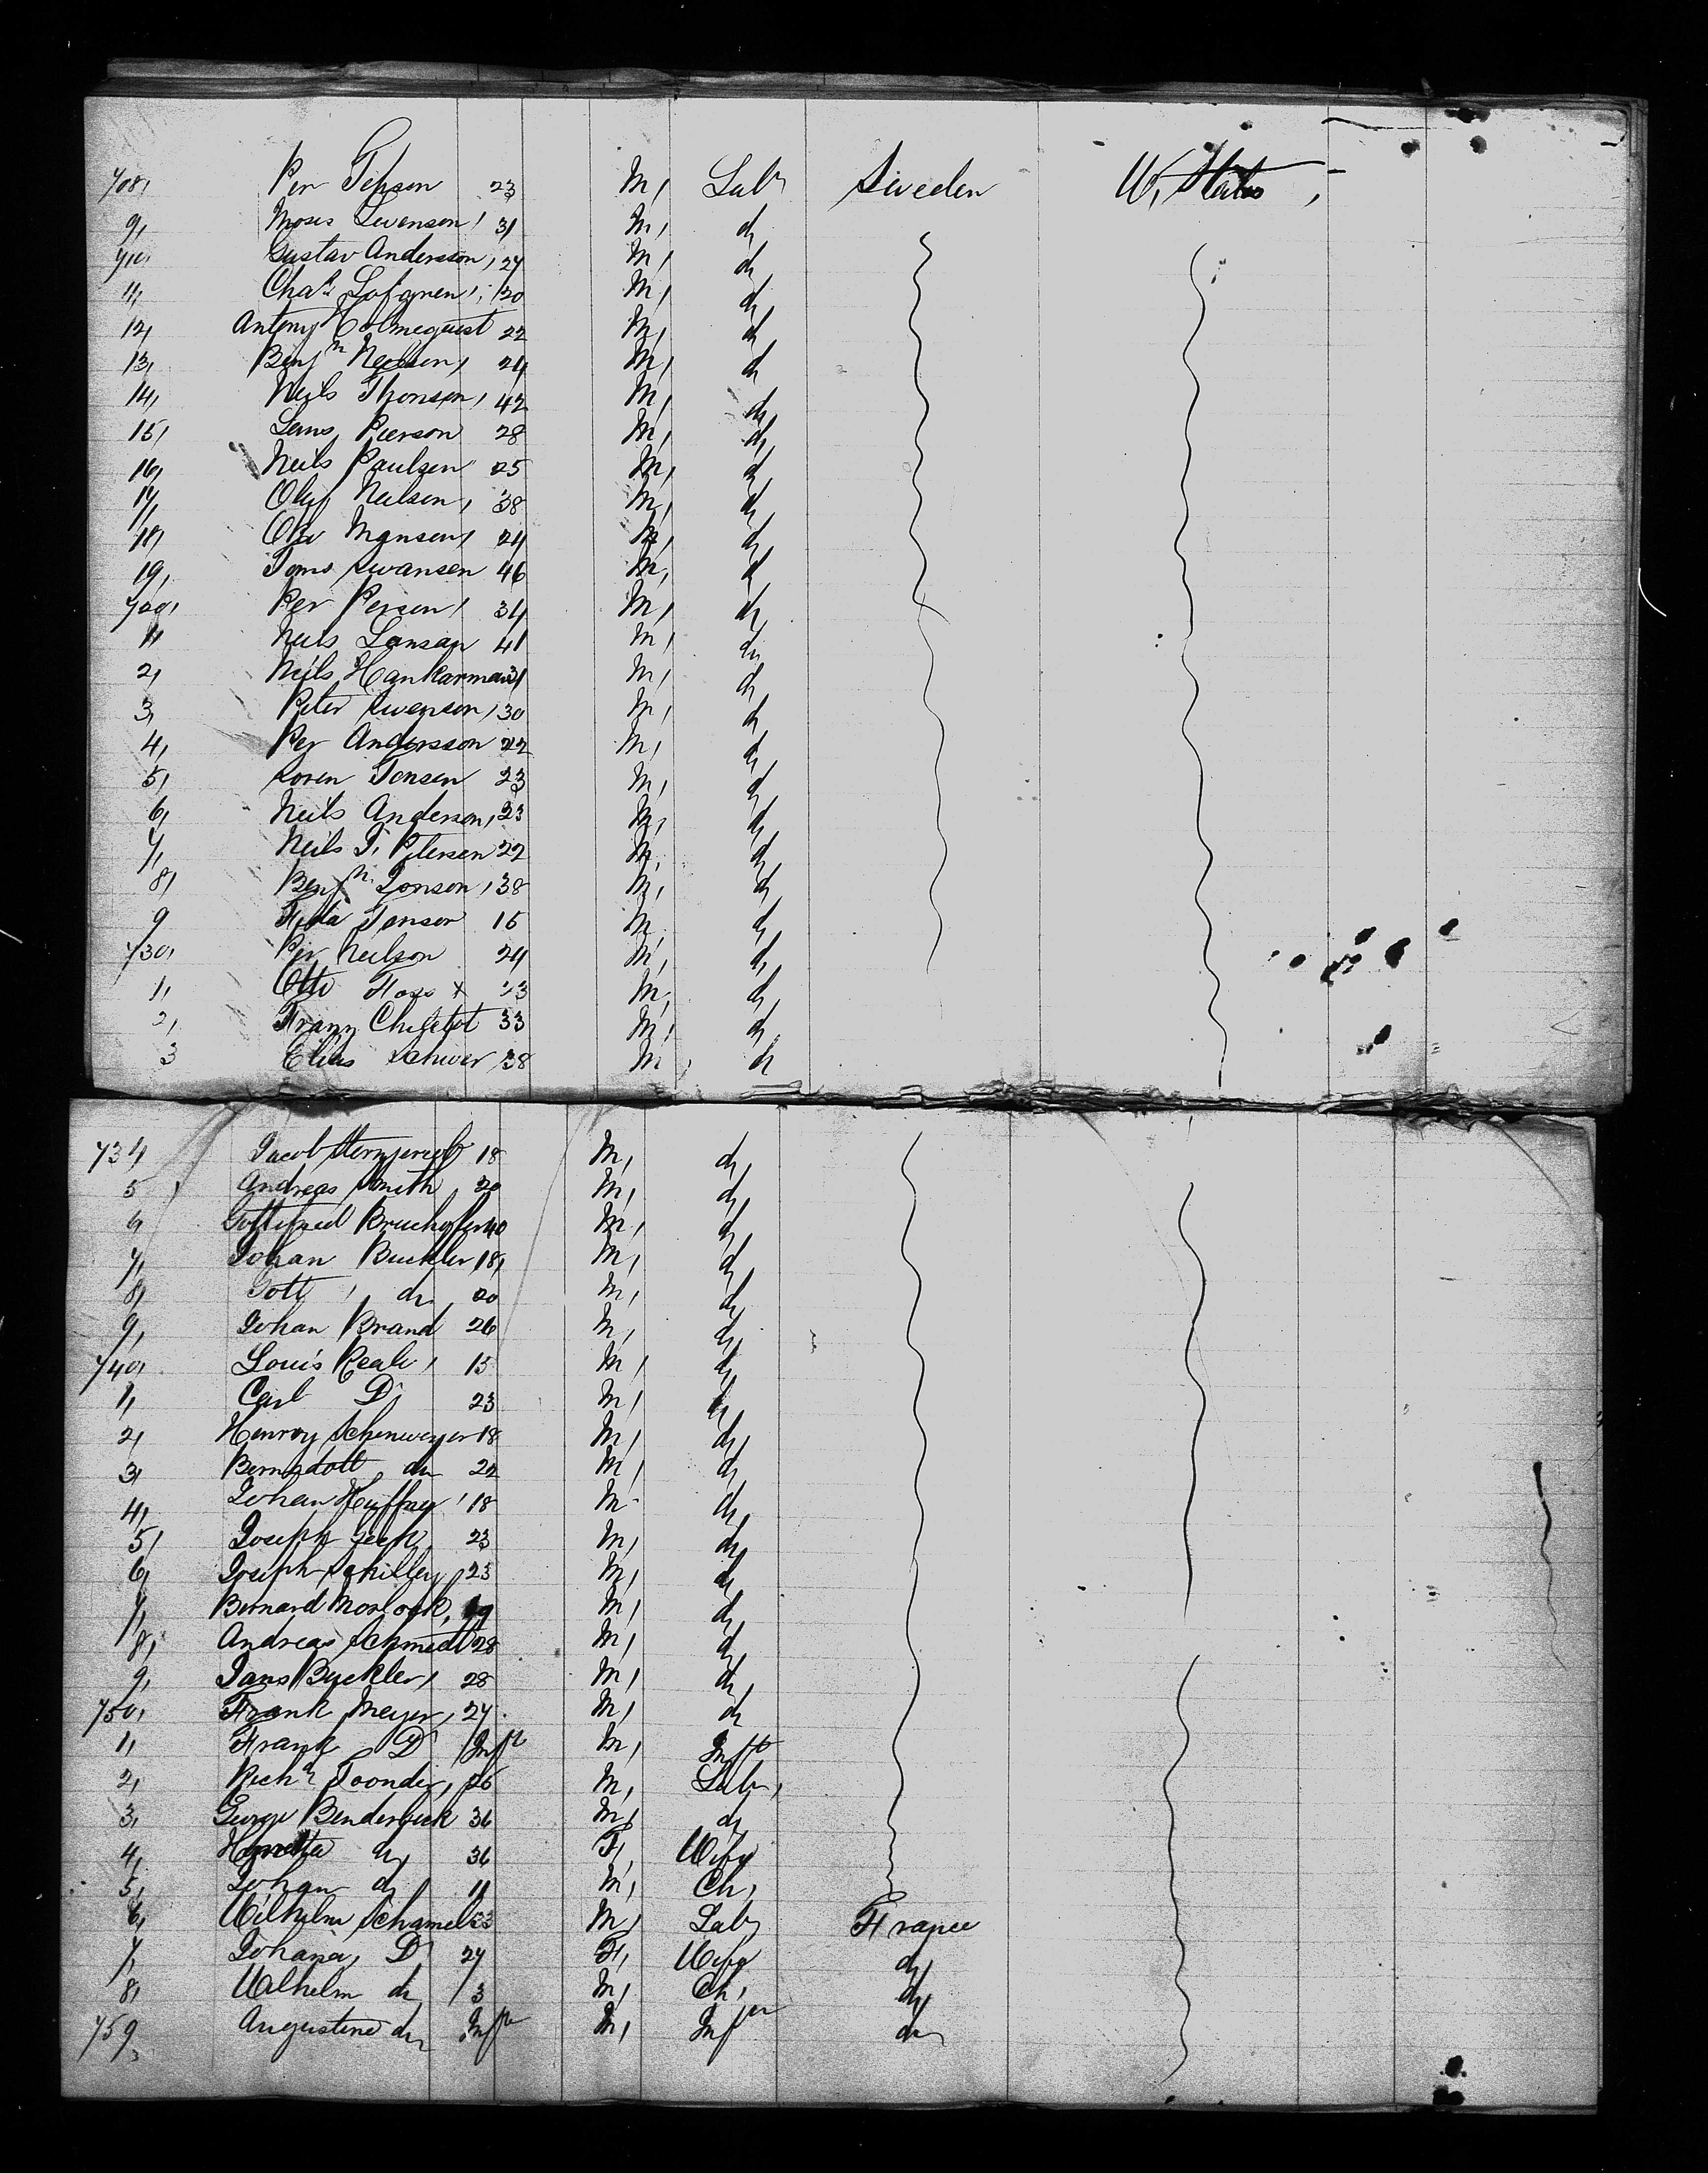 708, Per Jepson 23 M, Labr Sweden U, States,
9, Moses Swenson, 31 M, do
710, Gustav Andersson, 27 M, do
11, Chas Lofgren, 20 M, do
12, Antony Holmequist 22 M, do
13, Benjn Neilson, 24 M, do
14, Neils Thonson, 42 M, do
15, Lans Pierson 28 M, do
16, Neils Paulsen 25 M, do
17, Oluf Neilson, 38 M, do
18, Ola Manson, 24 M, do
19, Toms Swansen 46 M, do
720, Per Person, 34 M, do
11 Neils Lansan 41 M, do
2, Neils Hankarman 31 M, do
3, Peter Swenson, 30 M, do
4, Per Andersson 22 M, do
5, Soren Jensen 23 M, do
6, Neils Anderson, 23 M, do
7, Neils T. Petersen 22 M, do
8, Benjn Jonson, 38 M, do
9 Jansor 15 M do
730, Per Neilson 24 M, do
1, Otto Hoss x 23 M, do
2, Franz 33 M, do
3 Elias Schwer 38 M, do
734 Jacob 18 M, do
5 Andreas Smith, 20 M, do
6, Gottfried 40 M, do
7, Johan Buckler, 18, M, do
8, Gott, do 20 M, do
9, Johan Brand 26 M, do
740, Louis Reale, 15 M, do
1, Carl Do 23 M, do
2, Henroy Schenweyer 18 M, do
3, Bernadott do 22 M, do
4, Johan 18 M do
5, Joseph 23 M, do
6, Joseph Schiller, 23 M, do
7, Bernard Morlock, 19 M, do
8, Andreas Schmidt 28 M, do
9, Jans Buckler, 28 M, do
750, Frank Meyer, 27 M, do
1, Frank Do Inft M, Inft
2, Richd Toonder, 26 M, Labr,
3, George Benderbeck 36 M, do
4, do 36 F, Wife
5, Johan do 11 M, Ch,
6, Wilhelm Schamel 33 M, Labr France
7, Johana, Do 27 F, Wife do
8, Wilhelm do 3 M, Ch, do
759, Augustine do Inft M, Inft do